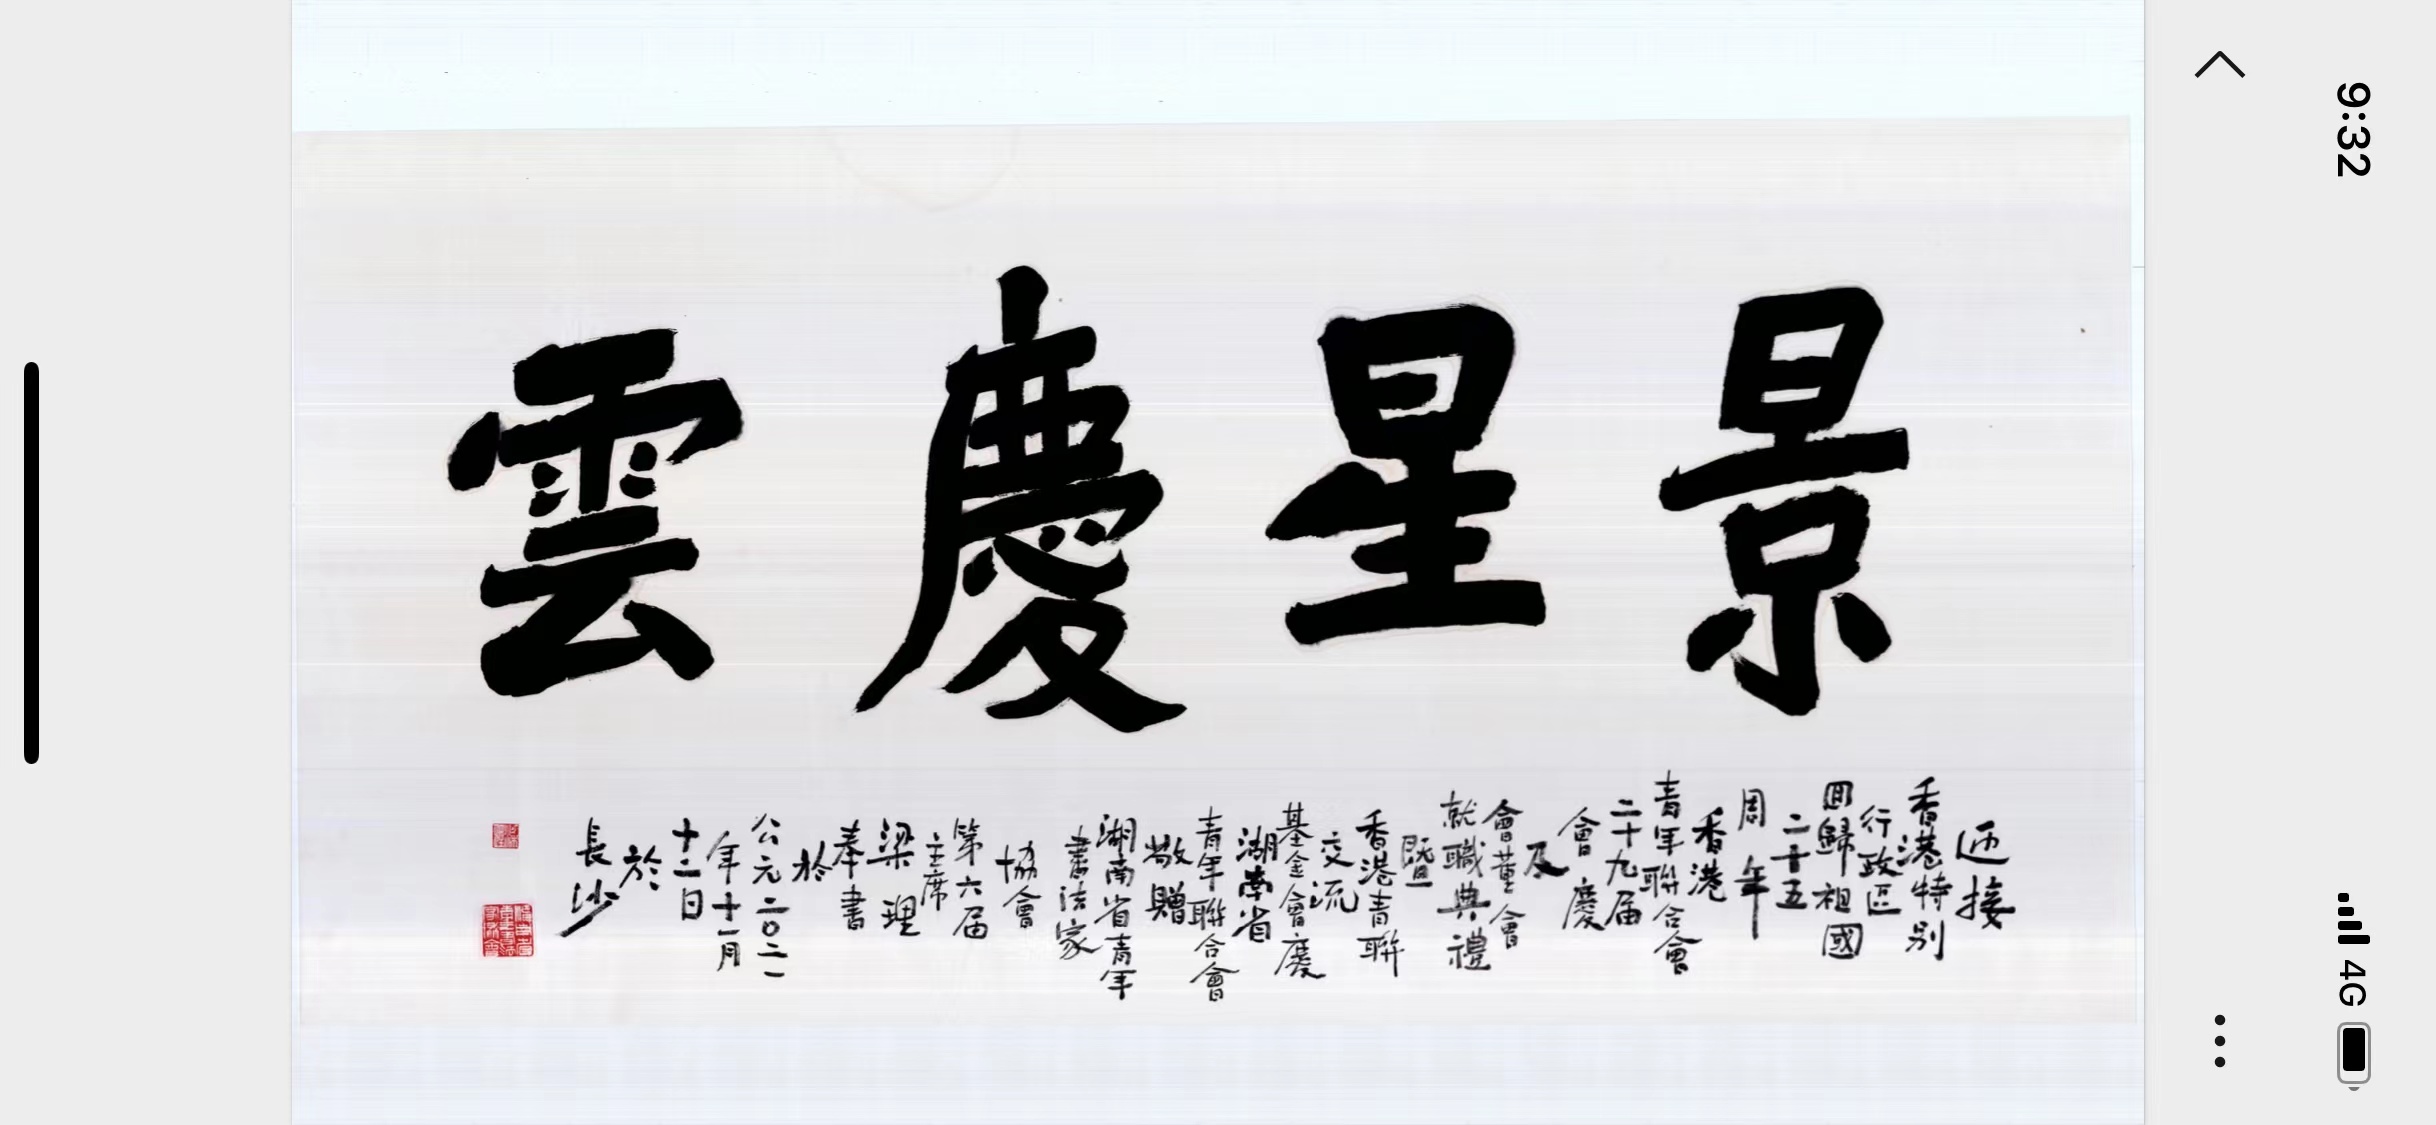 景星慶雲
迊接
香港特别
行政区
囬歸祖國
二十五
周年
香港
青年聯合會
二十九届
會慶
及
會董會
就職典禮
暨
香港青聯
交流
基金會慶
湖南省
青年聯合會
敬贈
湖南省青年
書法家
協會
第六届
主席
梁理
奉書
於
公元二〇二一
年十一月
十二日
於
長沙
9:32
4G